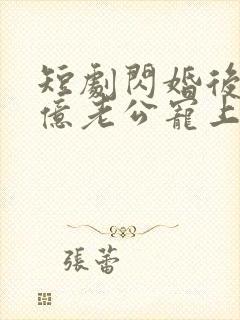 短劇閃婚後
億老公寵上
張蕾